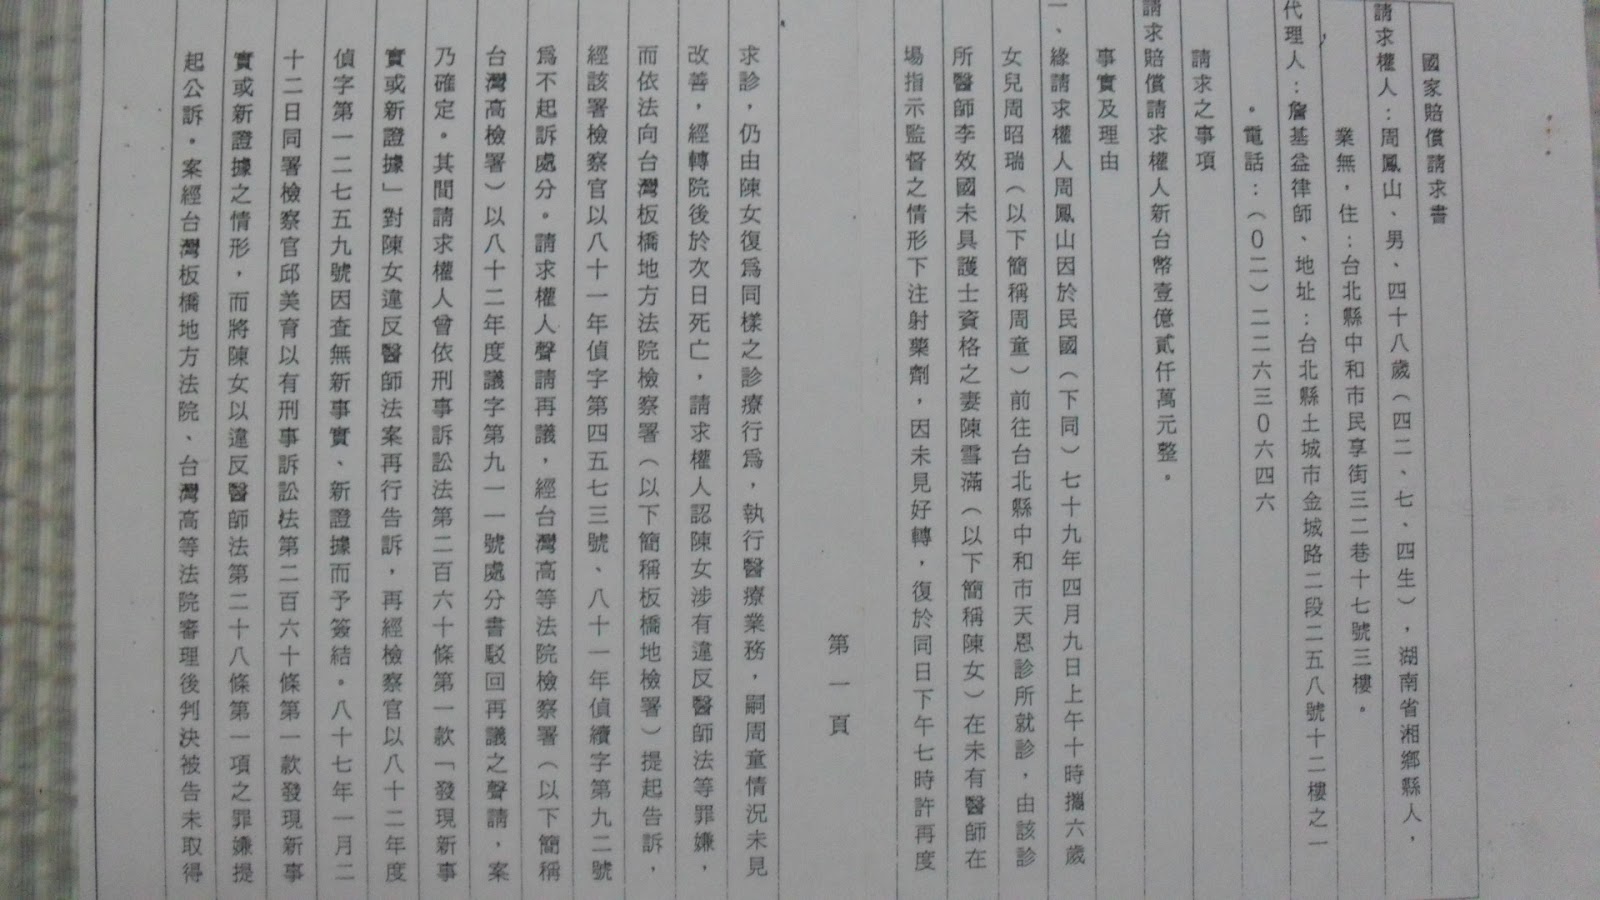 國家賠償請求書
請求權人：周鳳山、男、四十八歲（四二、七、四生），湖南省湘鄉縣人，
業無，住：台北縣中和市民享街三二巷十七號三樓。
代理人：詹基益律師、地址：台北縣土城市金城路二段二五八號十二樓之一
。電話：（０二）二二六三０六四六
請求之事項
請求賠償請求權人新台幣壹億貳仟萬元整。
事實及理由
一、緣請求權人周鳳山因於民國（下同）七十九年四月九日上午十時攜六歲
女兒周昭瑞（以下簡稱周童）前往台北縣中和市天恩診所就診，由該診
所醫師李效國未具護士資格之妻陳雪滿（以下簡稱陳女）在未有醫師在
場指示監督之情形下注射藥劑，因未見好轉，復於同日下午七時許再度
第一頁
求診，仍由陳女復為同樣之診療行為，執行醫療業務，嗣周童情況未見
改善，經轉院後於次日死亡，請求權人認陳女涉有違反醫師法等罪嫌，
而依法向台灣板橋地方法院檢察署（以下簡稱板橋地檢署）提起告訴，
經該署檢察官以八十一年偵字第四五七三號、八十一年偵續字第九二號
為不起訴處分。請求權人聲請再議，經台灣高等法院檢察署（以下簡稱
台灣高檢署）以八十二年度議字第九一一號處分書駁回再議之聲請，案
乃確定。其間請求權人曾依刑事訴訟法第二百六十條第一款「發現新事
實或新證據」對陳女違反醫師法案再行告訴，再經檢察官以八十二年度
偵字第一二七五九號因查無新事實、新證據而予簽結。八十七年一月二
十二日同署檢察官邱美育以有刑事訴訟法第二百六十條第一款發現新事
實或新證據之情形，而將陳女以違反醫師法第二十八條第一項之罪嫌提
起公訴。案經台灣板橋地方法院、台灣高等法院審理後判決被告未取得